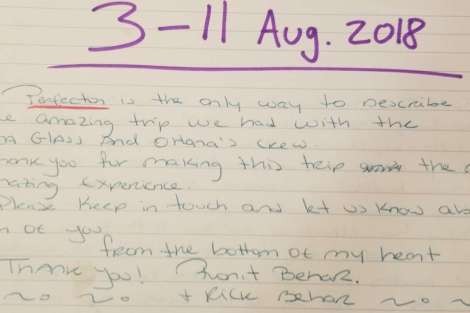 3-11 Aug. 2018
Perfection is the only way to describe
amazing trip we had with the
Glass and Ortana's crew.
Thank you for making this trip the
Experience.
Please keep in touch and let us know
of you
from the bottom of my heart
Thank you! Ronit Behar.
+ Rick Behar